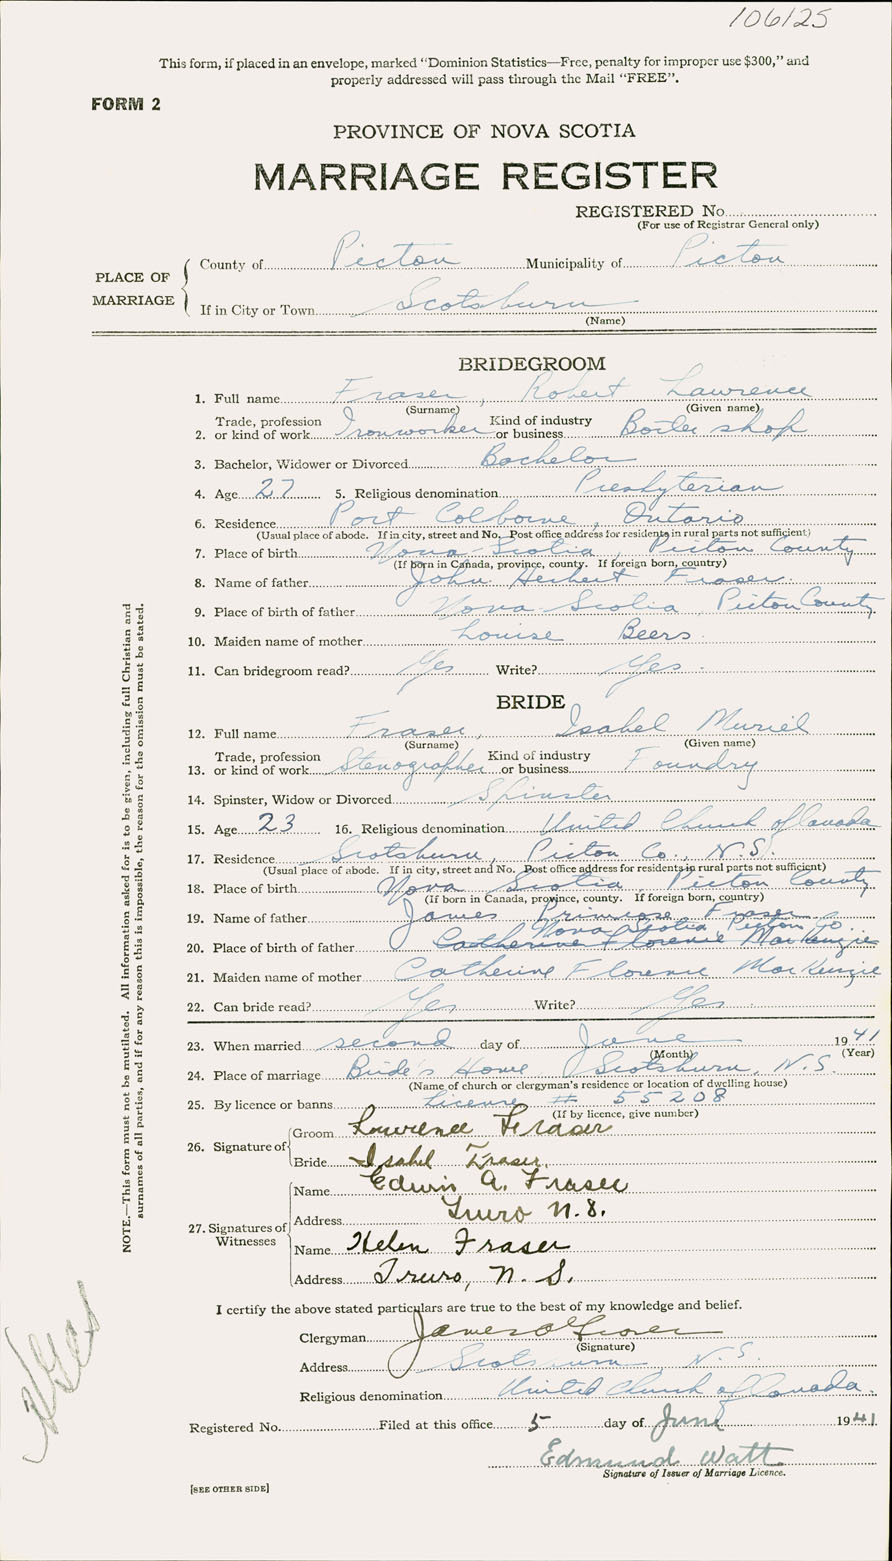 106125
This form, if placed in an envelope, marked "Dominion Statistics—Free, penalty for improper use $300," and
properly addressed will pass through the Mail "FREE".
FORM 2
PROVINCE OF NOVA SCOTIA
MARRIAGE REGISTER
REGISTERED No.
(For use of Registrar General only)
PLACE OF MARRIAGE
County of Pictou Municipality of Pictou
If in City or Town Scotsburn
(Name)
BRIDEGROOM
1. Full name Fraser, Robert Lawrence
(Surname) (Given name)
Trade, profession Kind of industry
2. or kind of work Ironworker or business Boiler shop
3. Bachelor, Widower or Divorced Bachelor
4. Age 27 5. Religious denomination Presbyterian
6. Residence Port Colborne, Ontario
(Usual place of abode. If in city, street and No. Post office address for residents in rural parts not sufficient)
7. Place of birth Nova Scotia, Pictou County
(If born in Canada, province, county. If foreign born, country)
8. Name of father John Herbert Fraser.
9. Place of birth of father Nova Scotia, Pictou County.
10. Maiden name of mother Louise Beers.
11. Can bridegroom read? Yes Write? Yes.
BRIDE
12. Full name Fraser, Isabel Muriel
(Surname) (Given name)
Trade, profession Kind of industry
13. or kind of work Stenographer or business Foundry
14. Spinster, Widow or Divorced Spinster
15. Age 23 16. Religious denomination United Church of Canada
17. Residence Scotsburn, Pictou Co., N.S.
(Usual place of abode. If in city, street and No. Post office address for residents in rural parts not sufficient)
18. Place of birth Nova Scotia, Pictou County
(If born in Canada, province, county. If foreign born, country)
19. Name of father James Primrose Fraser
Nova Scotia, Pictou Co.
20. Place of birth of father Catherine Florence MacKenzie
21. Maiden name of mother Catherine Florence MacKenzie
22. Can bride read? Yes Write? Yes
23. When married second day of June 1941
(Month) (Year)
24. Place of marriage Bride's Home Scotsburn, N.S.
(Name of church or clergyman's residence or location of dwelling house)
25. By licence or banns License # 55208
(If by licence, give number)
26. Signature of
Groom Lawrence Fraser
Bride Isabel Fraser.
27. Signatures of Witnesses
Name Edwin A. Fraser
Address Truro N.S.
Name Helen Fraser
Address Truro, N. S.
I certify the above stated particulars are true to the best of my knowledge and belief.
Clergyman James
(Signature)
Address Scotsburn, N.S.
Religious denomination United Church of Canada.
Registered No. Filed at this office 5 day of June 1941
Edmund Watt
Signature of Issuer of Marriage Licence.
[SEE OTHER SIDE]
NOTE.—This form must not be mutilated. All information asked for is to be given, including full Christian and
surnames of all parties, and if for any reason this is impossible, the reason for the omission must be stated.